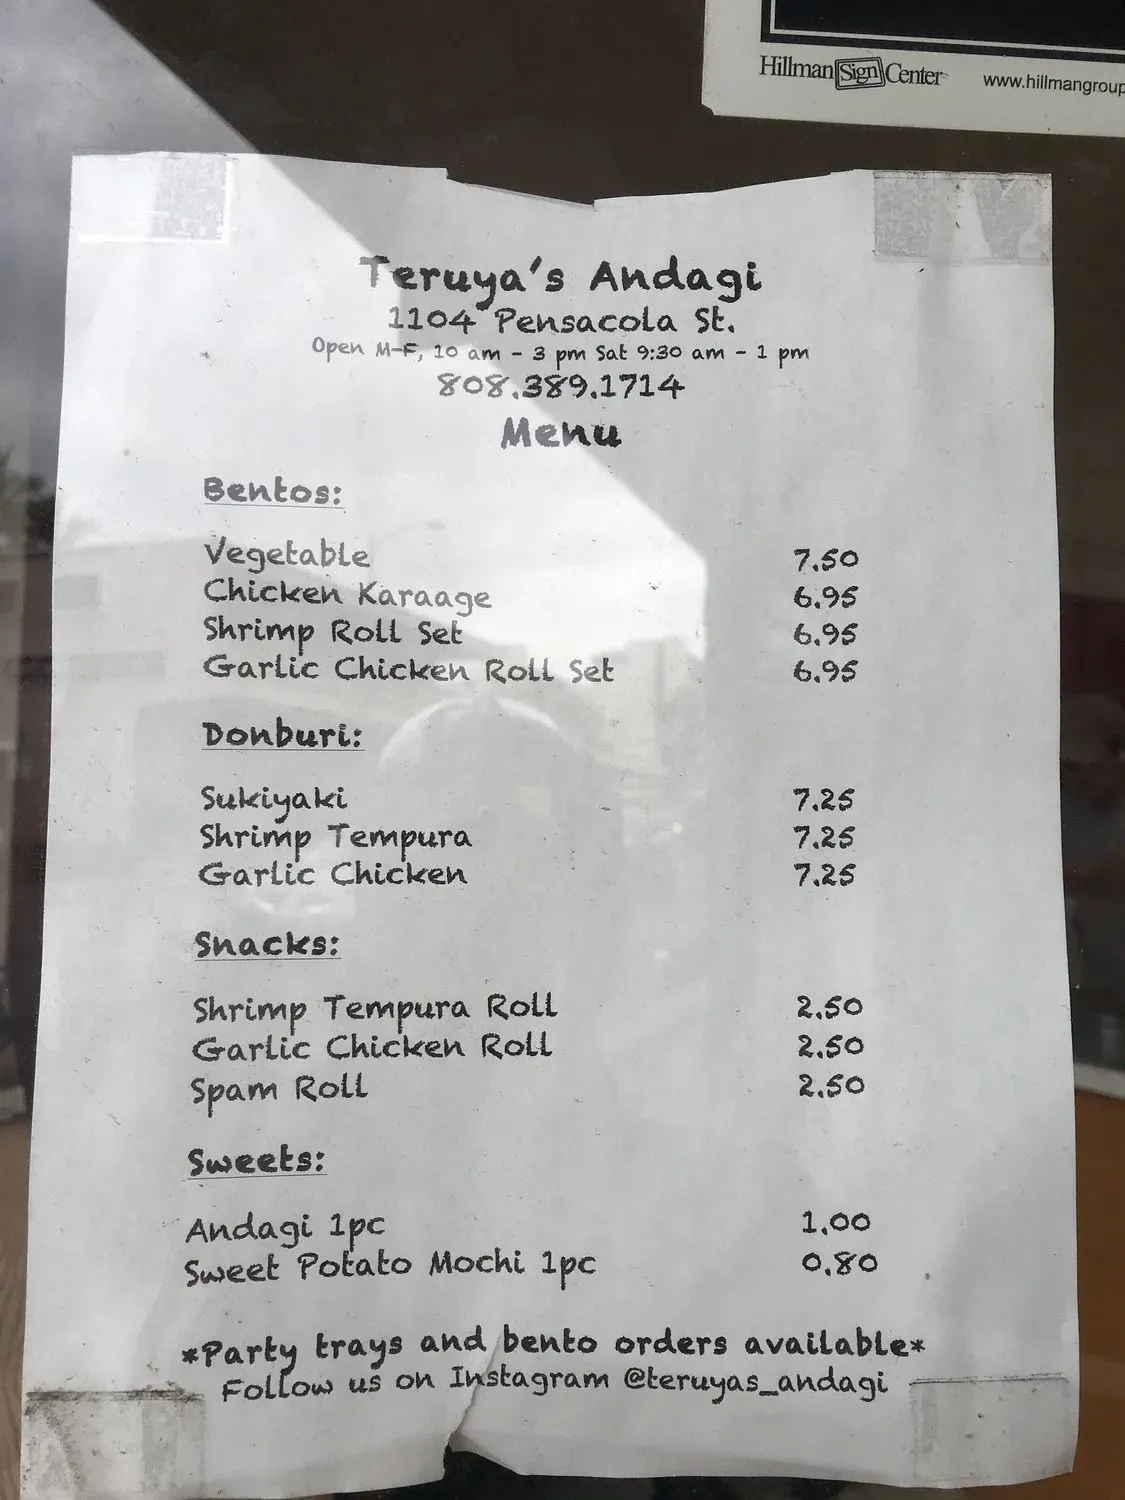 Hillman Sign Center www.hillmangroup
Teruya's Andagi
1104 Pensacola St.
Open M-F, 10 am - 3 pm Sat 9:30 am - 1 pm
808.389.1714
Menu
Bentos:
Vegetable 7.50
Chicken Karaage 6.95
Shrimp Roll Set 6.95
Garlic Chicken Roll Set 6.95
Donburi:
Sukiyaki 7.25
Shrimp Tempura 7.25
Garlic Chicken 7.25
Snacks:
Shrimp Tempura Roll 2.50
Garlic Chicken Roll 2.50
Spam Roll 2.50
Sweets:
Andagi 1pc 1.00
Sweet Potato Mochi 1pc 0.80
*Party trays and bento orders available*
Follow us on Instagram @teruyas_andagi